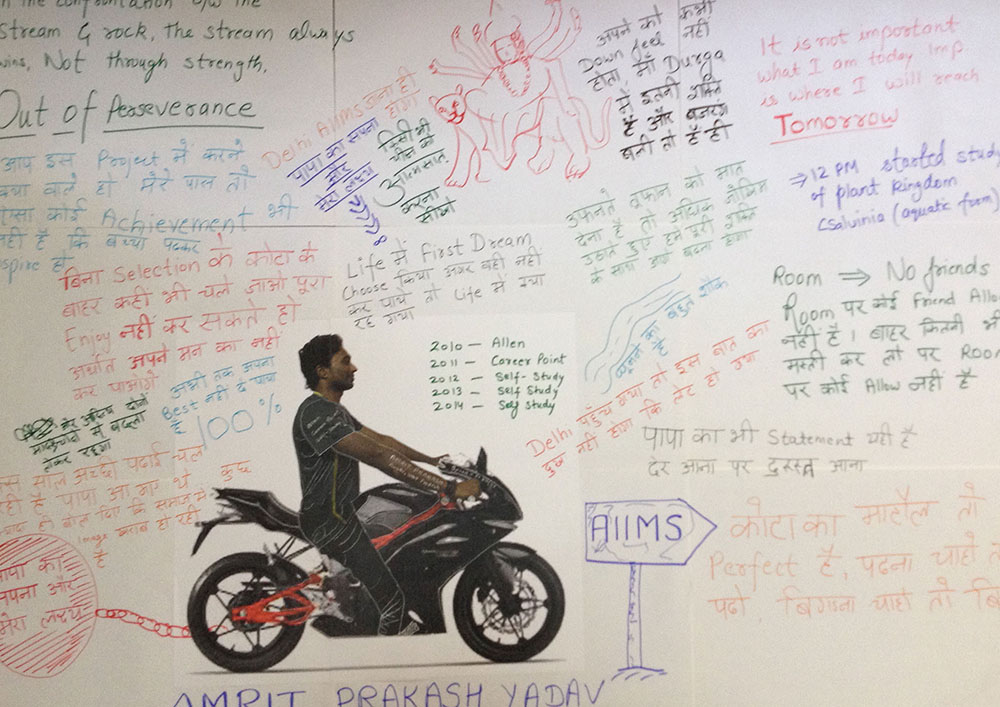 In the confrontation b/w the
Stream & rock, the stream always
wins. Not through strength.
Out of Perseverance
आप इस Project में करने
क्या वाले हो मेरे पास तो
ऐसा कोई Achievement भी
नहीं है कि बच्चा पढ़कर
inspire हो
Delhi AIIMS जाना ही
होगा
पापा का सपना
और
मेरा लक्ष्य
किसी भी
चीज को
आत्मसात
करना
सीखो
अपने को कभी
Down feel नहीं
होता, माँ Durga
में इतनी शक्ति
है और बजरंग
बली तो हैं ही
It is not important
what I am today Imp
is where I will reach
Tomorrow
→ 12 PM started study
of plant kingdom
(Salvinia (aquatic fern)
उफानते तूफान को मात
देना है तो अधिक जोखिम
उठाते हुए हमें पूरी शक्ति
के साथ आगे बढ़ना होगा
बिना Selection के कोटा के
बाहर कहीं भी चले जाओ पूरा
Enjoy नहीं कर सकते हो
अर्थात अपने मन का नहीं
कर पाओगे
Life में First Dream
Choose किया अगर वही नहीं
कर पाये तो Life में क्या
रह गया
Room ⇒ No friends
Room पर कोई Friend Allow
नहीं है। बाहर कितनी भी
मस्ती कर लो पर Room
पर कोई Allow नहीं है
घूमने का बहुत शौक
है
2010 — Allen
2011 — Career Point
2012 — Self-Study
2013 — Self-Study
2014 — Self Study
अभी तक अपना
Best नहीं दे पाया
है 100%
Delhi पहुंच गया तो इस बात का
दुख नहीं होगा कि लेट हो गया
पापा का भी Statement यही है
देर आना पर दुरुस्त आना
इस साल अच्छी पढ़ाई चल
रही है पापा आ गए थे कुछ
Image खराब हो रही
है
पापा का
सपना और
मेरा लक्ष्य
AMRIT PRAKASH
AIIMS
कोटा का माहौल तो
Perfect है, पढ़ना चाहो तो
पढ़ो, बिगड़ना चाहो तो
AMRIT PRAKASH YADAV